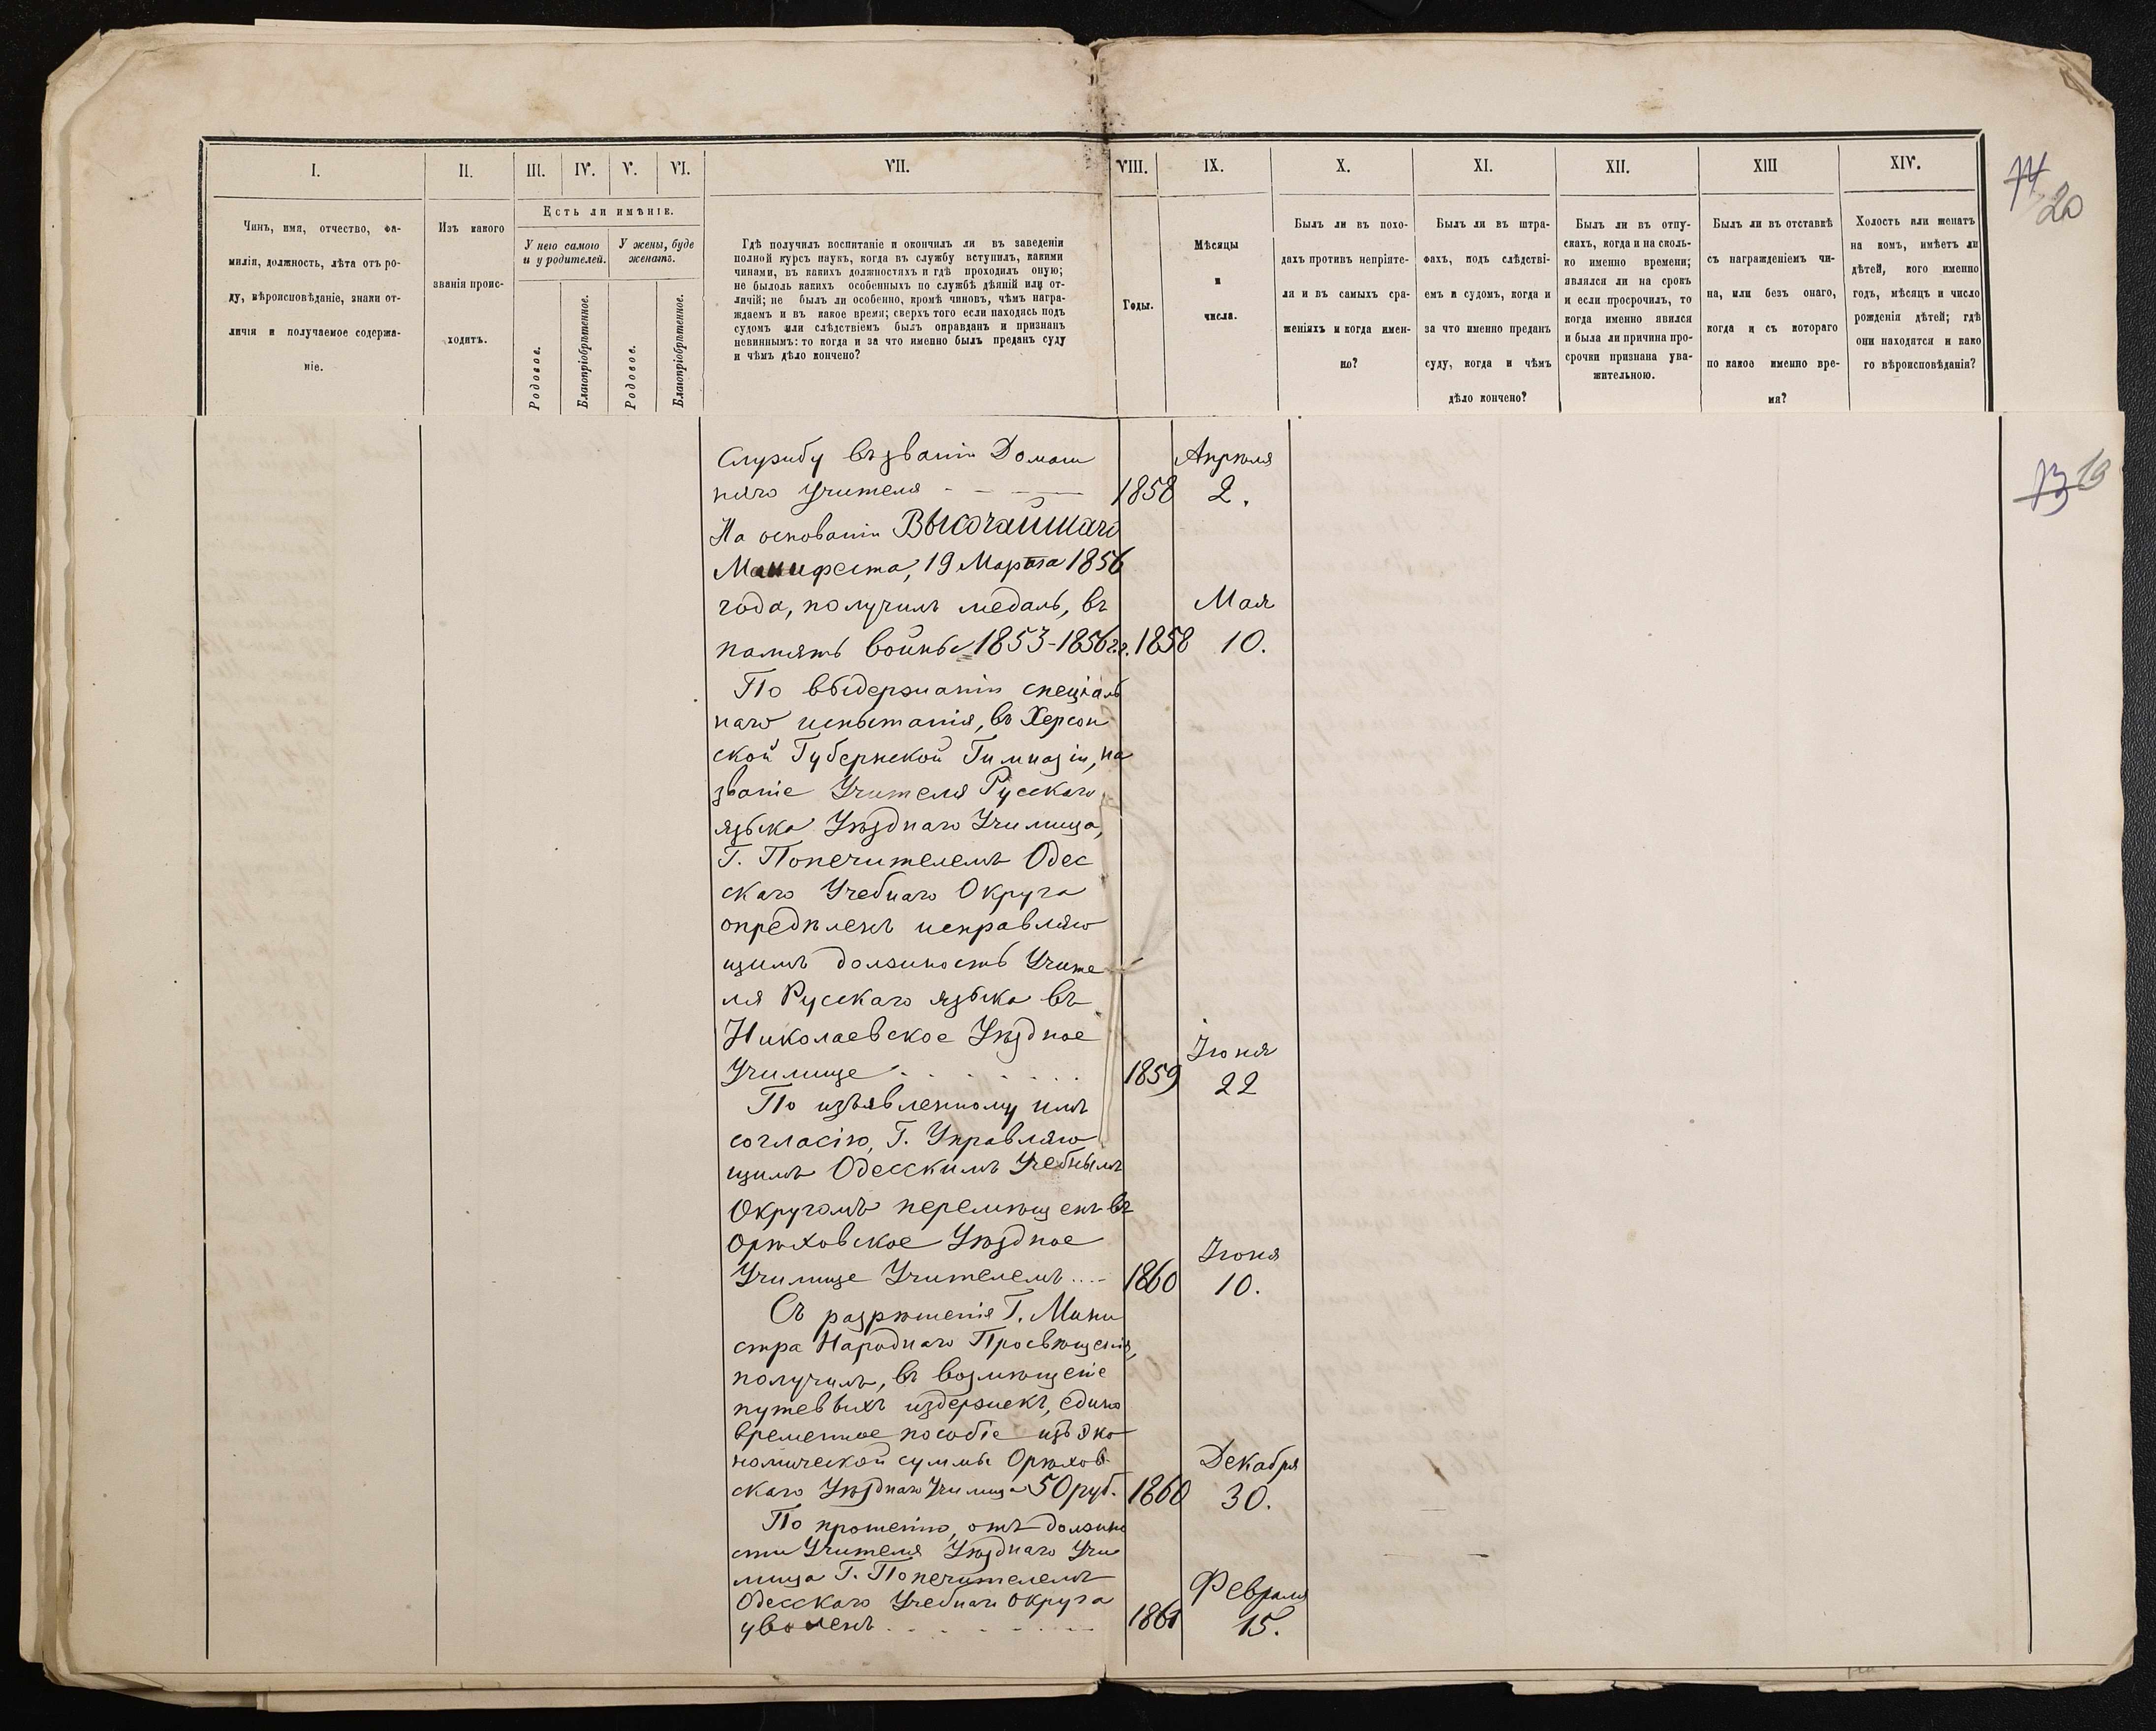 I.
II.
III.
IV.
V.
VI.
VII.
VIII.
IX.
X.
XI.
XII.
XIII
XIV.
Чинъ, имя, отчество, фа-
милія, должность, лѣта отъ ро-
ду, вѣроисповѣданіе, знаки от-
личія и получаемое содержа-
ніе.
Изъ какого
званія проис-
ходитъ.
Есть ли имѣніе.
У него самого
и у родителей.
У жены, буде
женатъ.
Родовое.
Благопріобрѣтенное.
Родовое.
Благопріобрѣтенное.
Гдѣ получилъ воспитаніе и окончилъ ли въ заведеніи
полной курсъ наукъ, когда въ службу вступилъ, какими
чинами, въ какихъ должностяхъ и гдѣ проходилъ оную;
не былоль какихъ особенныхъ по службѣ дѣяній или от-
личій; не былъ ли особенно, кромѣ чиновъ, чѣмъ награ-
ждаемъ и въ какое время; сверхъ того если находясь подъ
судомъ или слѣдствіемъ былъ оправданъ и признанъ
невиннымъ: то когда и за что именно былъ преданъ суду
и чѣмъ дѣло кончено?
Годы.
Мѣсяцы
и
числа.
Былъ ли въ похо-
дахъ противъ непріяте-
ля и въ самыхъ сра-
женіяхъ и когда имен-
но?
Былъ ли въ штра-
фахъ, подъ слѣдстві-
емъ и судомъ, когда и
за что именно преданъ
суду, когда и чѣмъ
дѣло кончено?
Былъ ли въ отпу-
скахъ, когда и на сколь-
ко именно времени;
являлся ли на срокъ
и если просрочилъ, то
когда именно явился
и была ли причина про-
срочки признана ува-
жительною.
Былъ ли въ отставкѣ
съ награжденіемъ чи-
на, или безъ онаго,
когда и съ котораго
по какое именно вре-
мя?
Холостъ или женатъ
на комъ, имѣетъ ли
дѣтей, кого именно
годъ, мѣсяцъ и число
рожденія дѣтей; гдѣ
они находятся и како
го вѣроисповѣданія?
74
20
73 19
Службу въ званіи Домаш
няго Учителя - - - 1858 Апрѣля 2.
На основаніи Высочайшаго
Манифеста, 19 Марта 1856
года, получилъ медаль, въ
память войны 1853-1856 гг. 1858 Мая 10.
По выдержаніи спеціаль
наго испытанія, въ Херсон
ской Губернской Гимназіи, на
званіе Учителя Русскаго
языка Уѣзднаго Училища,
Г. Попечителемъ Одес
скаго Учебнаго Округа
опредѣленъ исправляю
щимъ должность Учите
ля Русскаго языка въ
Николаевское Уѣздное
Училище . . . . . 1859 Іюня 22
По изъявленному имъ
согласію, Г. Управляю
щимъ Одесскимъ Учебнымъ
Округомъ перемѣщенъ въ
Орѣховское Уѣздное
Училище Учителемъ .... 1860 Іюня 10.
Съ разрѣшенія Г. Мини
стра Народнаго Просвѣщенія,
получилъ, въ возмѣщеніе
путевыхъ издержекъ, едино
временное пособіе изъ эко
номической суммы Орѣхов
скаго Уѣзднаго Училища 50 руб. 1860 Декабря 30.
По прошенію, отъ должно
сти Учителя Уѣзднаго Учи
лища Г. Попечителемъ
Одесскаго Учебнаго Округа
уволенъ . . . . . 1861 Февраля 15.